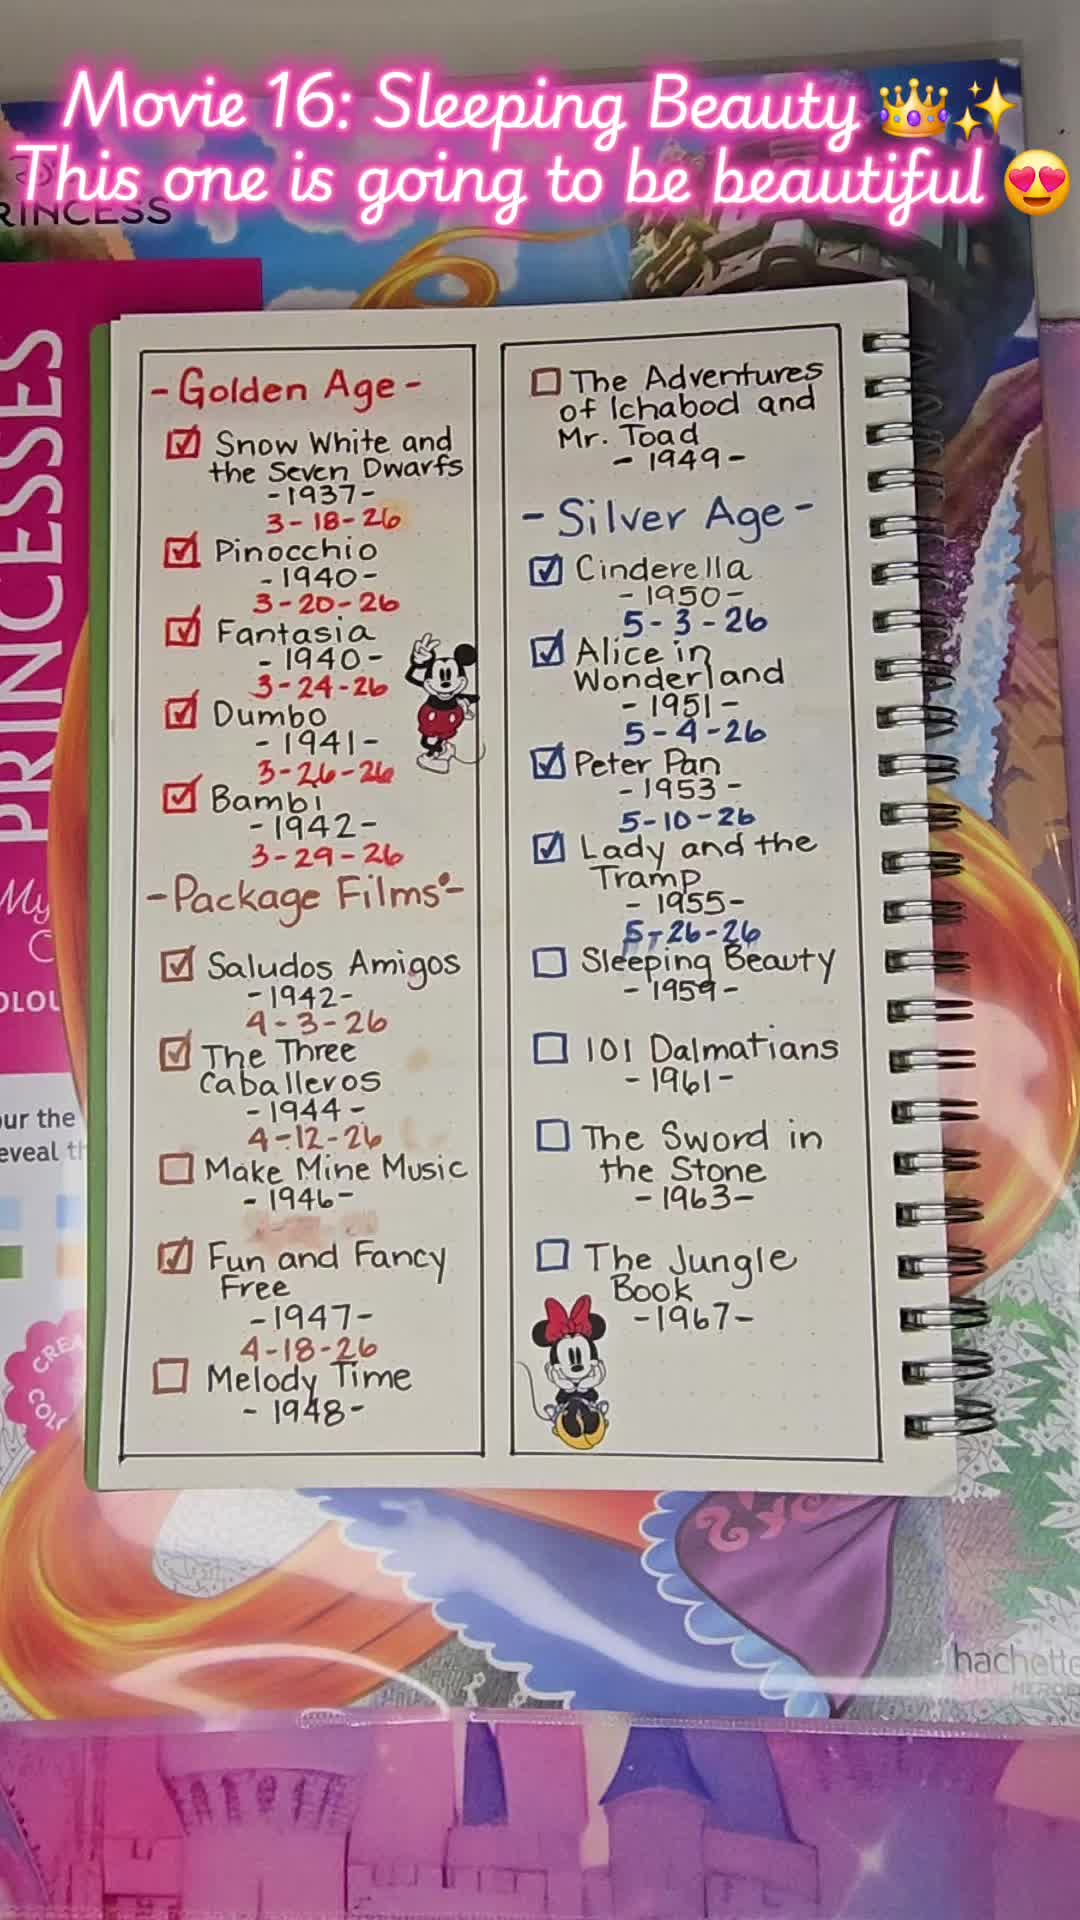 Movie 16: Sleeping Beauty 👑✨
This one is going to be beautiful 😍
RINCESS
PRINCESSES
My
C
OLOU
our the
eveal th
CREA
COL
- Golden Age -
Snow White and
the Seven Dwarfs
- 1937 -
3-18-26
Pinocchio
- 1940 -
3-20-26
Fantasia
- 1940 -
3-24-26
Dumbo
- 1941 -
3-26-26
Bambi
- 1942 -
3-29-26
- Package Films -
Saludos Amigos
- 1942 -
4-3-26
The Three
Caballeros
- 1944 -
4-12-26
Make Mine Music
- 1946 -
Fun and Fancy
Free
- 1947 -
4-18-26
Melody Time
- 1948 -
The Adventures
of Ichabod and
Mr. Toad
- 1949 -
- Silver Age -
Cinderella
- 1950 -
5-3-26
Alice in
Wonderland
- 1951 -
5-4-26
Peter Pan
- 1953 -
5-10-26
Lady and the
Tramp
- 1955 -
5-26-26
Sleeping Beauty
- 1959 -
101 Dalmatians
- 1961 -
The Sword in
the Stone
- 1963 -
The Jungle
Book
- 1967 -
hachette
HEROE